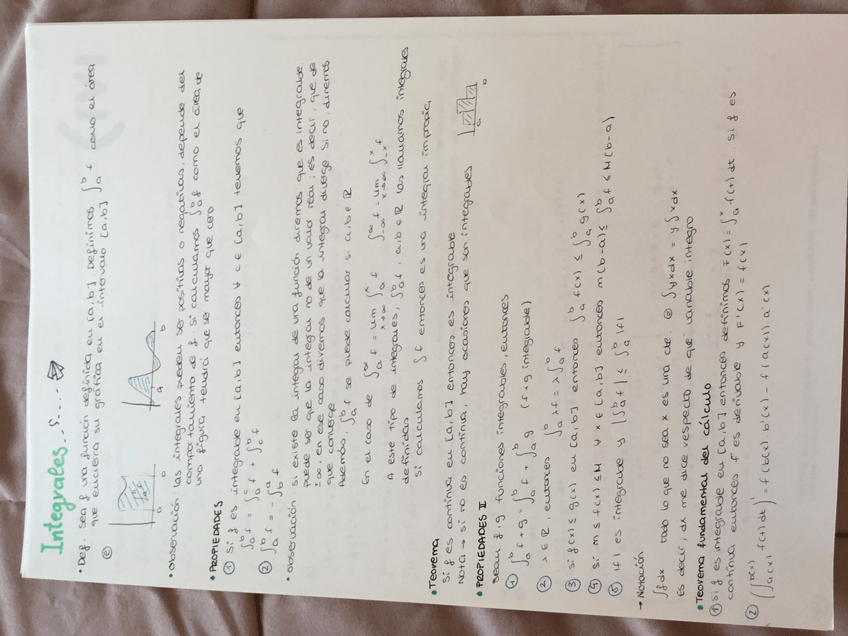 Integrales
• Def. Sea f una función definida en [a,b]. Definimos ∫ₐᵇ f como el área
que encierra su gráfica en el intervalo [a,b]
• Observación las integrales pueden ser positivas o negativas, depende del
comportamiento de f. Si calculamos ∫ₐᵇ f como el área de
una figura tendrá que ser mayor que cero
• PROPIEDADES
① Si f es integrable en [a,b] entonces ∀ c ∈ [a,b] tenemos que
∫ₐᵇ f = ∫ₐᶜ f + ∫_c^b f
② ∫ₐᵇ f = - ∫_b^a f
• Observación Si existe la integral de una función diremos que es integrable.
Puede ser que la integral no de un valor real; es decir, que de
±∞, en ese caso diremos que la integral diverge si no, diremos
que converge
Además, ∫ₐᵇ f se puede calcular si a,b ∈ ℝ
En el caso de ∫_a^∞ f = lim_{x→∞} ∫_a^x f ∫_{-∞}^∞ f = lim_{x→∞} ∫_{-x}^x f
A este tipo de integrales, ∫ₐᵇ f, a,b ∈ ℝ las llamamos integrales
definidas
Si calculamos ∫ f entonces es una integral impropia
• Teorema
Si f es continua en [a,b] entonces es integrable
Nota → si no es continua, hay ocasiones que son integrables
• PROPIEDADES II
Sean f, g funciones integrables, entonces
① ∫ₐᵇ f + g = ∫ₐᵇ f + ∫ₐᵇ g (f + g integrable)
② λ ∈ ℝ, entonces ∫ₐᵇ λf = λ ∫ₐᵇ f
③ Si f(x) ≤ g(x) en [a,b] entonces ∫ₐᵇ f(x) ≤ ∫ₐᵇ g(x)
④ Si m ≤ f(x) ≤ M ∀ x ∈ [a,b] entonces m(b-a) ≤ ∫ₐᵇ f ≤ M(b-a)
⑤ |f| es integrable y |∫ₐᵇ f| ≤ ∫ₐᵇ |f|
→ Notación
∫ f dx todo lo que no sea x es una cte. ⓔ ∫ yx dx = y ∫ x dx
Es decir; dx me dice respecto de que variable integro
• Teorema fundamental del cálculo
① Si f es integrable en [a,b] entonces definimos F(x) = ∫_a^x f(t) dt si f es
continua entonces F es derivable y F'(x) = f(x)
② (∫_{a(x)}^{b(x)} f(t) dt)' = f(b(x)) b'(x) - f(a(x)) . a'(x)